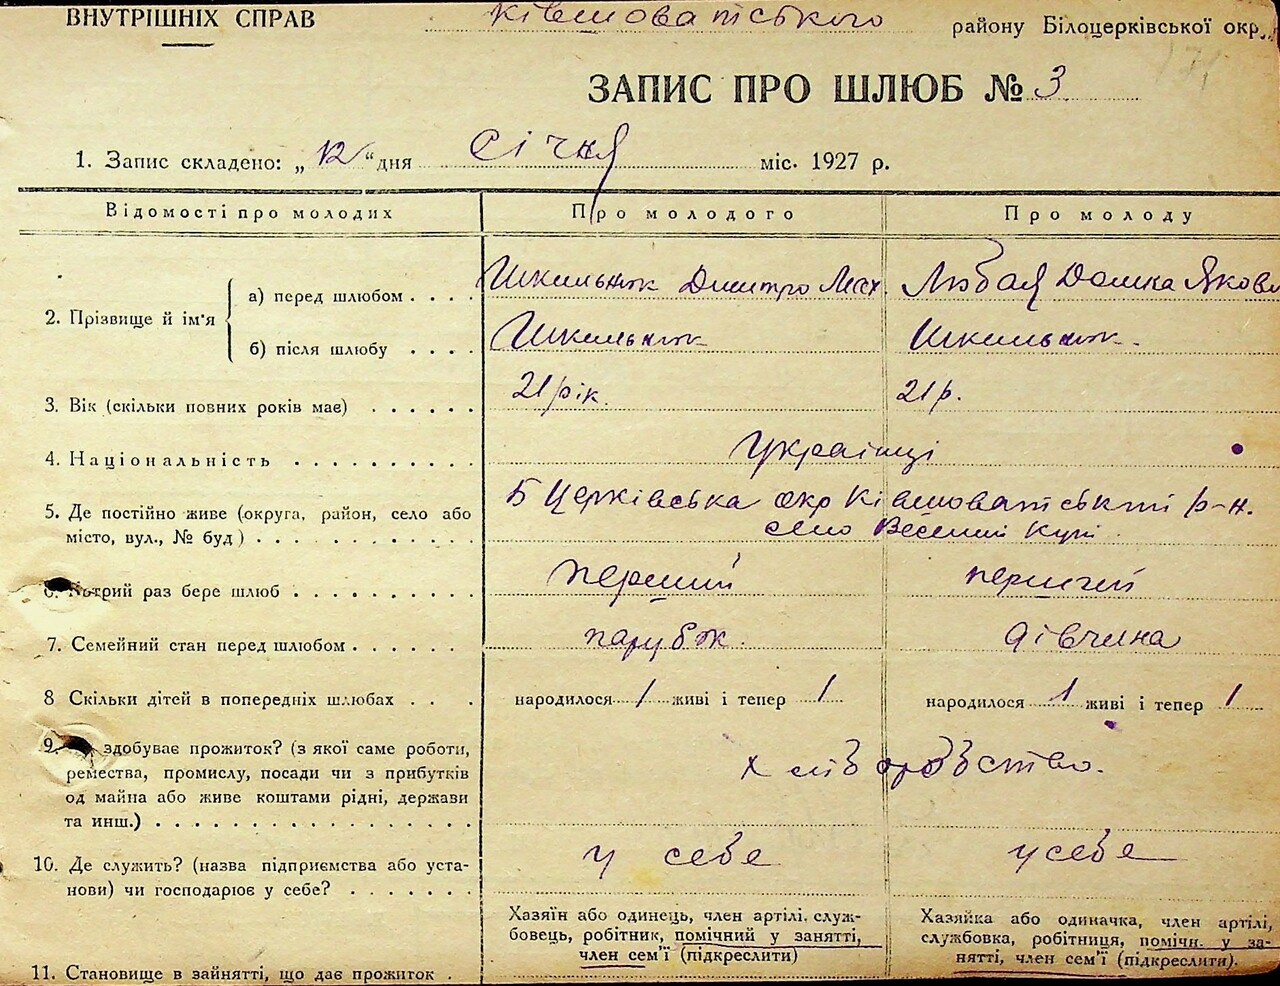 ВНУТРІШНІХ СПРАВ Ківшоватського району Білоцерківської окр.
ЗАПИС ПРО ШЛЮБ № 3
1. Запис складено: „12“ дня січня міс. 1927 р.
Відомості про молодих Про молодого Про молоду
2. Прізвище й ім'я
а) перед шлюбом . . . . Шкильнюк Дмитро Любая Домка Якови
б) після шлюбу . . . . Шкильнюк Шкильнюк.
3. Вік (скільки повних років має) . . . . . . 21 рік. 21 р.
4. Національність . . . . . . . . . . Українці
5. Де постійно живе (округа, район, село або Б Церківська окр Ківшоватський р-н.
місто, вул., № буд) . . . . . . . . . . . . село Веселий Кут
6. Котрий раз бере шлюб . . . . . . . . . . перший перший
7. Семейний стан перед шлюбом . . . . . . парубок. дівчина
8 Скільки дітей в попередніх шлюбах . . . народилося / живі і тепер / народилося / живі і тепер /
9. здобуває прожиток? (з якої саме роботи,
ремества, промислу, посади чи з прибутків хліборобство.
од майна або живе коштами рідні, держави
та инш.) . . . . . . . . . . . . . . . . . .
10. Де служить? (назва підприємства або уста- у себе у себе
нови) чи господарює у себе? . . . . . . .
Хазяїн або одинець, член артілі. служ-
бовець, робітник, помічний у занятті,
член сем'ї (підкреслити)
Хазяйка або одиначка, член артілі,
службовка, робітниця, помічн. у за-
нятті, член сем'ї (підкреслити).
11. Становище в зайнятті, що дає прожиток .